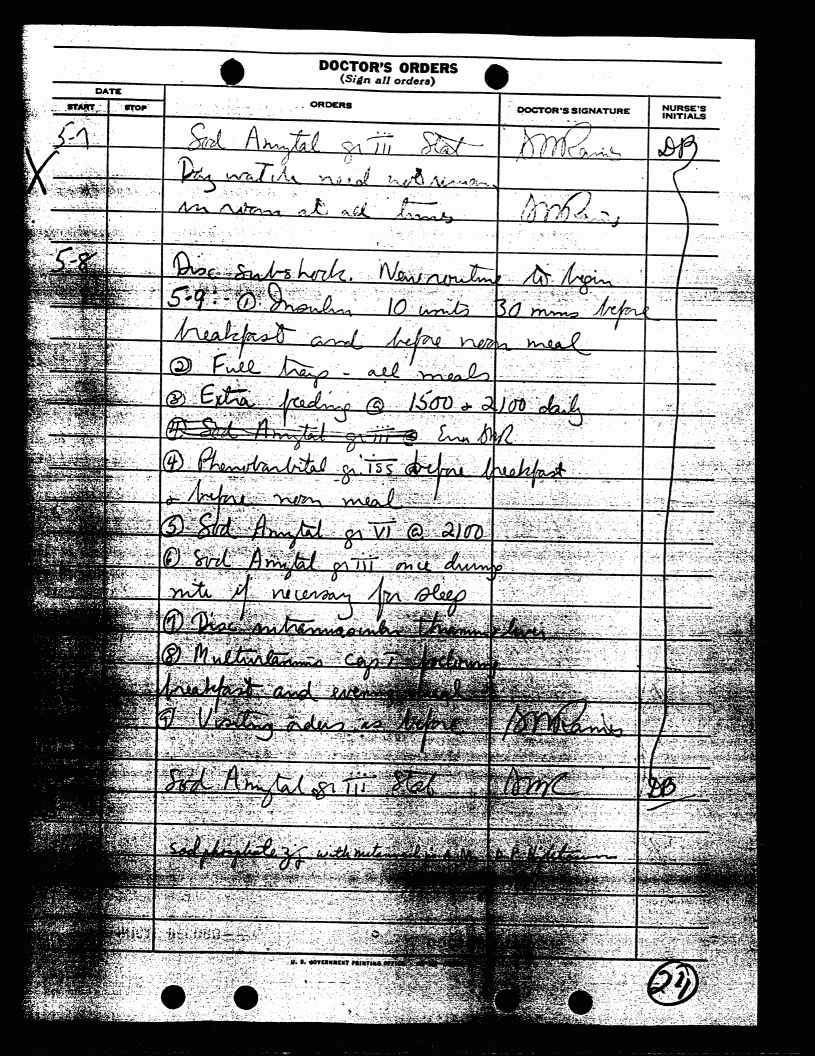 DOCTOR'S ORDERS
(Sign all orders)
DATE
START STOP ORDERS DOCTOR'S SIGNATURE NURSE'S INITIALS
5-7 Sod Amytal gr III Stat DB
Day watch need not remain
in room at all times
5-8 Disc subshock. New routine to begin
5-9: ① Insulin 10 units 30 mins before
breakfast and before noon meal
② Full trays - all meals
③ Extra feeding @ 1500 & 2100 daily
④ Sod Amytal gr III @
④ Phenobarbital gr ISS before breakfast
& before noon meal
⑤ Sod Amytal gr VI @ 2100
⑥ Sod Amytal gr III once during
nite if necessary for sleep
⑦ Disc intramuscular
⑧ Multivitamins cap I
breakfast and evening meal
⑨ Visiting orders as before
Sod Amytal gr III Stat DB
sod phosphate with
U. S. GOVERNMENT PRINTING OFFICE
24